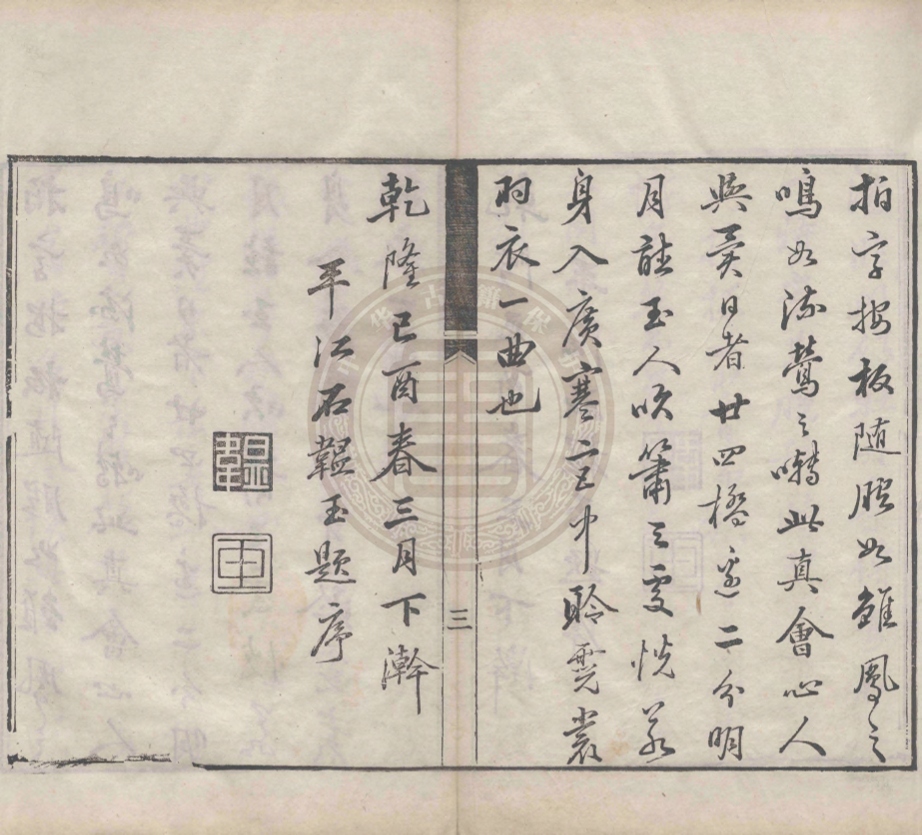 拍字按板随腔如雛鳳之
鳴如流鶯之囀此真會心人
與異日者廿四橋邊二分明
月玉人吹簫之處恍若
身入廣寒宮中聆霓裳
羽衣一曲也
三
乾隆己酉春三月下澣
平江石韞玉題序
韞
玉